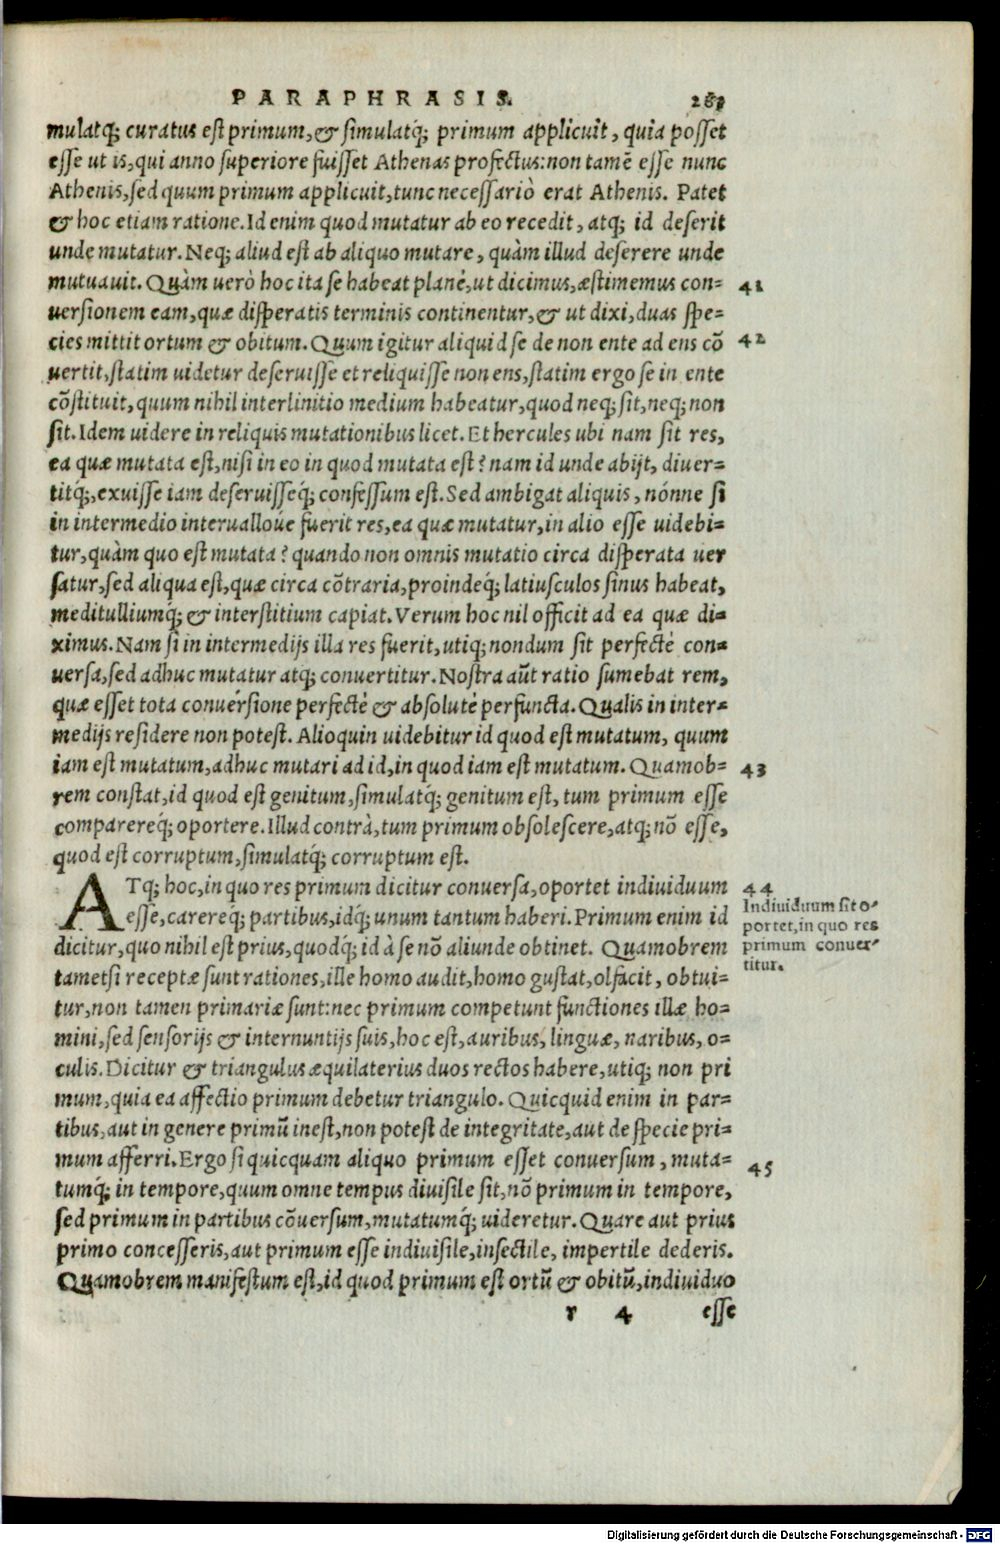 PARAPHRASIS.
mulatq; curatus est primum, & simulatq́; primum applicuit, quia posset
esse ut is, qui anno superiore fuisset Athenas profectus: non tamẽ esse nunc
Athenis, sed quum primum applicuit, tunc necessariò erat Athenis. Patet
& hoc etiam ratione. Id enim quod mutatur ab eo recedit, atq; id deserit
unde mutatur. Neq; aliud est ab aliquo mutare, quàm illud deserere unde
mutuauit. Quàm uerò hoc ita se habeat planè, ut dicimus, æstimemus con-
41
uersionem eam, quæ disperatis terminis continentur, & ut dixi, duas spe-
cies mittit ortum & obitum. Quum igitur aliquid se de non ente ad ens cō
42
uertit, statim uidetur deseruisse et reliquisse non ens, statim ergo se in ente
cōstituit, quum nihil interlinitio medium habeatur, quod neq; sit, neq; non
sit. Idem uidere in reliquis mutationibus licet. Et hercules ubi nam sit res,
ea quæ mutata est, nisi in eo in quod mutata est? nam id unde abijt, diuer-
titq́;, exuisse iam deseruisseq́; confessum est. Sed ambigat aliquis, nónne si
in intermedio interualloúe fuerit res, ea quæ mutatur, in alio esse uidebi-
tur, quàm quo est mutata? quando non omnis mutatio circa disperata uer
satur, sed aliqua est, quæ circa cōtraria, proindeq́; latiusculos sinus habeat,
meditulliumq́; & interstitium capiat. Verum hoc nil officit ad ea quæ di-
ximus. Nam si in intermedijs illa res fuerit, utiq; nondum sit perfectè con-
uersa, sed adhuc mutatur atq; conuertitur. Nostra aūt ratio sumebat rem,
quæ esset tota conuersione perfectè & absolutè perfuncta. Qualis in inter-
medijs residere non potest. Alioquin uidebitur id quod est mutatum, quum
iam est mutatum, adhuc mutari ad id, in quod iam est mutatum. Quamob-
43
rem constat, id quod est genitum, simulatq́; genitum est, tum primum esse
comparereq́; oportere. Illud contrà, tum primum obsolescere, atq; nō esse,
quod est corruptum, simulatq́; corruptum est.
ATq; hoc, in quo res primum dicitur conuersa, oportet indiuiduum
44
Indiuiduum sit o-
portet, in quo res
primum conuer-
titur.
esse, carereq́; partibus, idq́; unum tantum haberi. Primum enim id
dicitur, quo nihil est prius, quodq́; id à se nō aliunde obtinet. Quamobrem
tametsi receptæ sunt rationes, ille homo audit, homo gustat, olfacit, obtui-
tur, non tamen primariæ sunt: nec primum competunt functiones illæ ho-
mini, sed sensorijs & internuntijs suis, hoc est, auribus, linguæ, naribus, o-
culis. Dicitur & triangulus æquilaterius duos rectos habere, utiq; non pri
mum, quia ea affectio primum debetur triangulo. Quicquid enim in par-
tibus, aut in genere primū inest, non potest de integritate, aut de specie pri-
mum afferri. Ergo si quicquam aliquo primum esset conuersum, muta-
45
tumq́; in tempore, quum omne tempus diuisile sit, nō primum in tempore,
sed primum in partibus cōuersum, mutatumq́; uideretur. Quare aut prius
primo concesseris, aut primum esse indiuisile, insectile, impertile dederis.
Quamobrem manifestum est, id quod primum est ortū & obitū, indiuiduo
r 4 esse
Digitalisierung gefördert durch die Deutsche Forschungsgemeinschaft - DFG